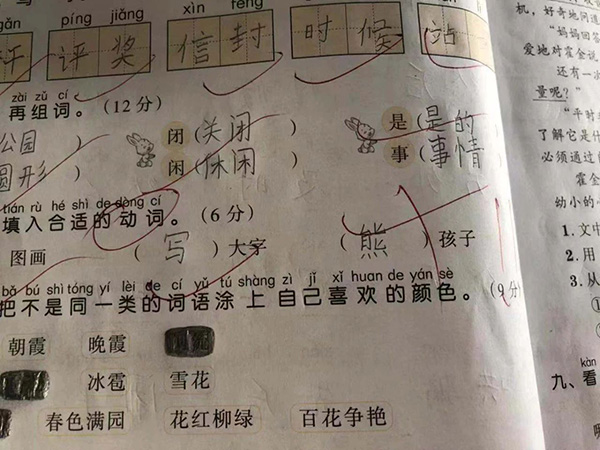 gǎn píng jiǎng xìn fēng
评奖 信封 时候 站
zài zǔ cí
再组词。(12分)
公园 闭(关闭) 是(是的)
圆形) 闲(休闲) 事(事情)
tián rù hé shì de dòng cí
填入合适的动词。(6分)
图画 (写)大字 (熊)孩子
bǎ bú shì tóng yí lèi de cí yǔ tú shàng zì jǐ xǐ huan de yán sè
把不是同一类的词语涂上自己喜欢的颜色。(9分)
朝霞 晚霞
冰雹 雪花
春色满园 花红柳绿 百花争艳
机,好奇地问道
“妈妈回答
爱地对霍金说
还有一次
量呢?”
“平时
了解它是什
必须通过
霍金
幼小的心
1.文中
2.用
3.从
①
kàn
九、看